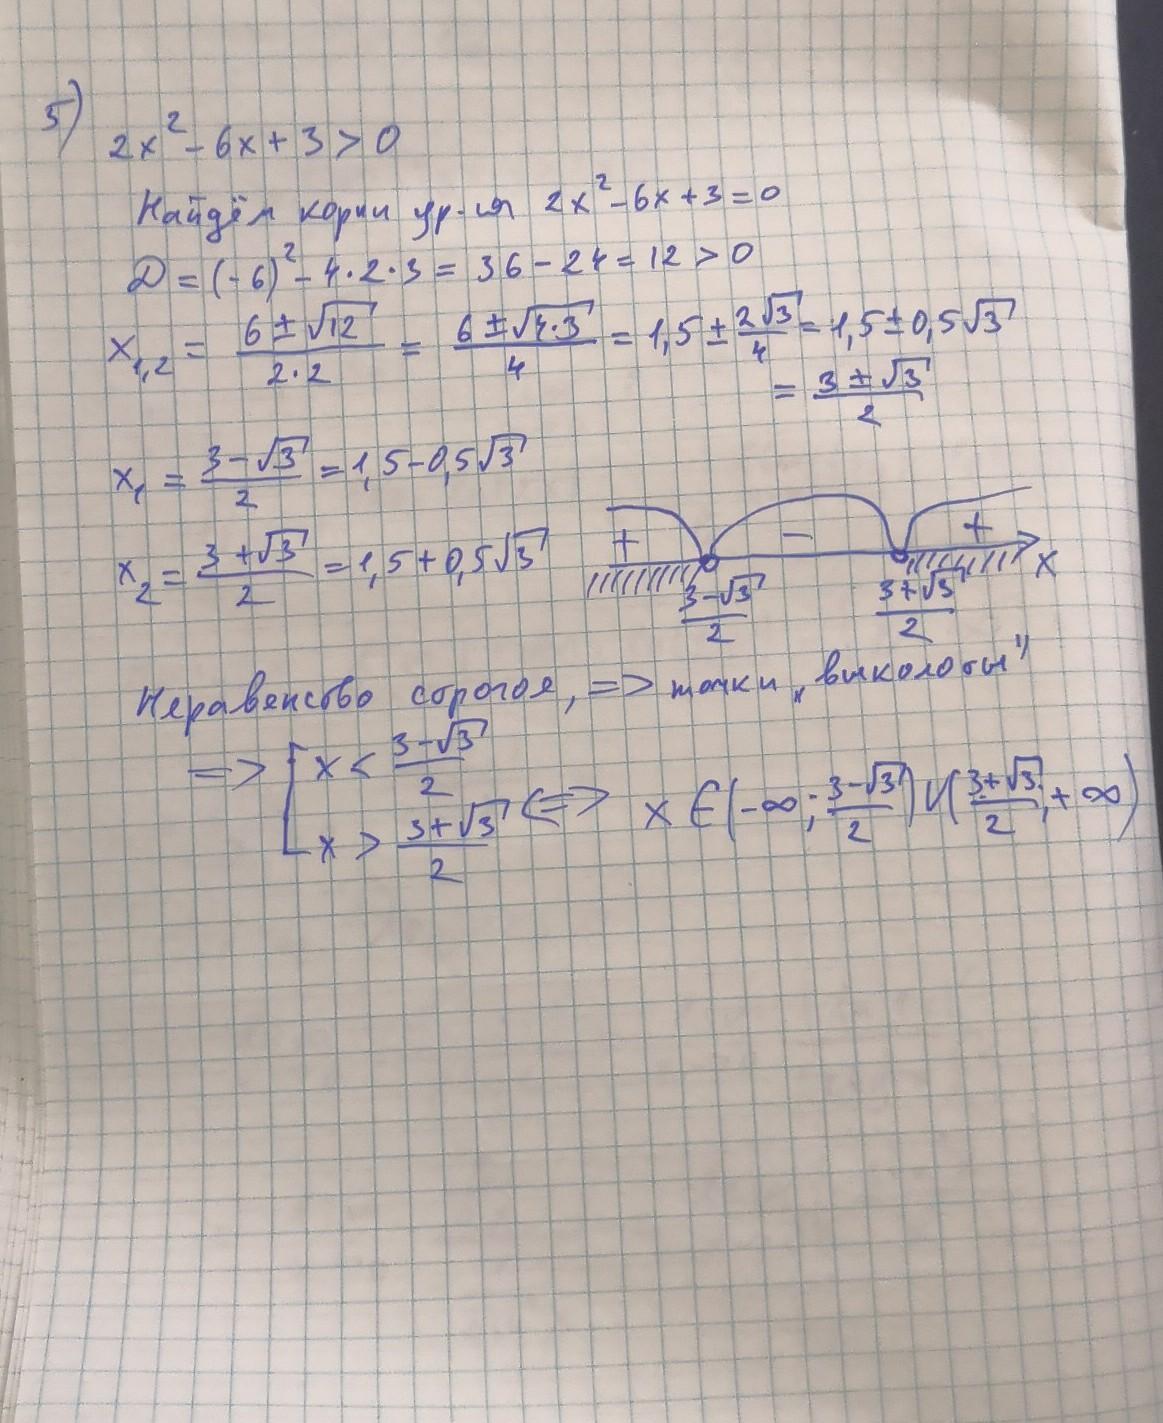 5)
2x² - 6x + 3 > 0
Найдём корни ур-ия 2x² - 6x + 3 = 0
D = (-6)² - 4·2·3 = 36 - 24 = 12 > 0
x₁,₂ = (6 ± √12)/(2·2) = (6 ± √(4·3))/4 = 1,5 ± 2√3/4 = 1,5 ± 0,5√3
= (3 ± √3)/2
x₁ = (3 - √3)/2 = 1,5 - 0,5√3
x₂ = (3 + √3)/2 = 1,5 + 0,5√3
+ - + x
(3 - √3)/2 (3 + √3)/2
Неравенство строгое, => точки „выколоты"
=> [ x < (3 - √3)/2
x > (3 + √3)/2 <=> x ∈ (-∞; (3 - √3)/2) ∪ ((3 + √3)/2; +∞)